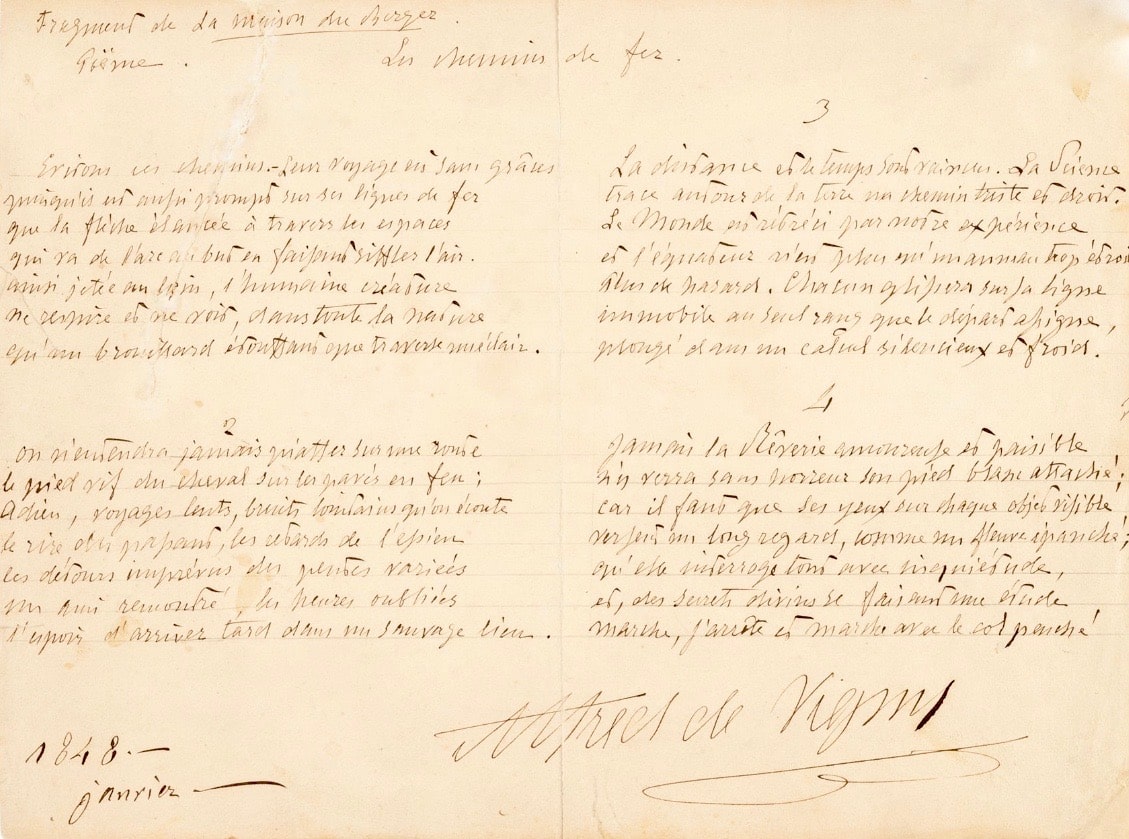 Fragment de La maison du Berger
Poëme .
Les chemins de fer.
Evitons ces chemins. - Leur voyage est sans grâces
puisqu'il est aussi prompt sur ses lignes de fer
que la flèche élancée à travers les espaces
qui va de l'arc au but en faisant siffler l'air.
ainsi jetée au loin, l'humaine créature
ne respire et ne voit, dans toute la nature
qu'un brouillard étouffant que traverse un éclair.
2
on n'entendra jamais piaffer sur une route
le pied vif du cheval sur les pavés en feu ;
Adieu, voyages lents, bruits lointains qu'on écoute
le rire du passant, les retards de l'essieu
les détours imprévus des pentes variées
un ami rencontré, les heures oubliées
l'espoir d'arriver tard dans un sauvage lieu .
3
La distance et le temps sont vaincus. La Science
trace autour de la terre un chemin triste et droit.
Le Monde est rétréci par notre expérience
et l'équateur n'est plus qu'un anneau trop étroit
Plus de hasard. Chacun glissera sur sa ligne
immobile au seul rang que le départ assigne,
plongé dans un calcul silencieux et froid.
4
Jamais la Rêverie amoureuse et paisible
n'y verra sans horreur son pied blanc attaché ;
car il faut que ses yeux sur chaque objet visible
versent un long regard, comme un fleuve épanché ;
qu'elle interroge tout avec inquiétude,
et, des secrets divins se faisant une étude
marche, s'arrête et marche avec le col penché
Alfred de Vigny
1848. —
janvier —